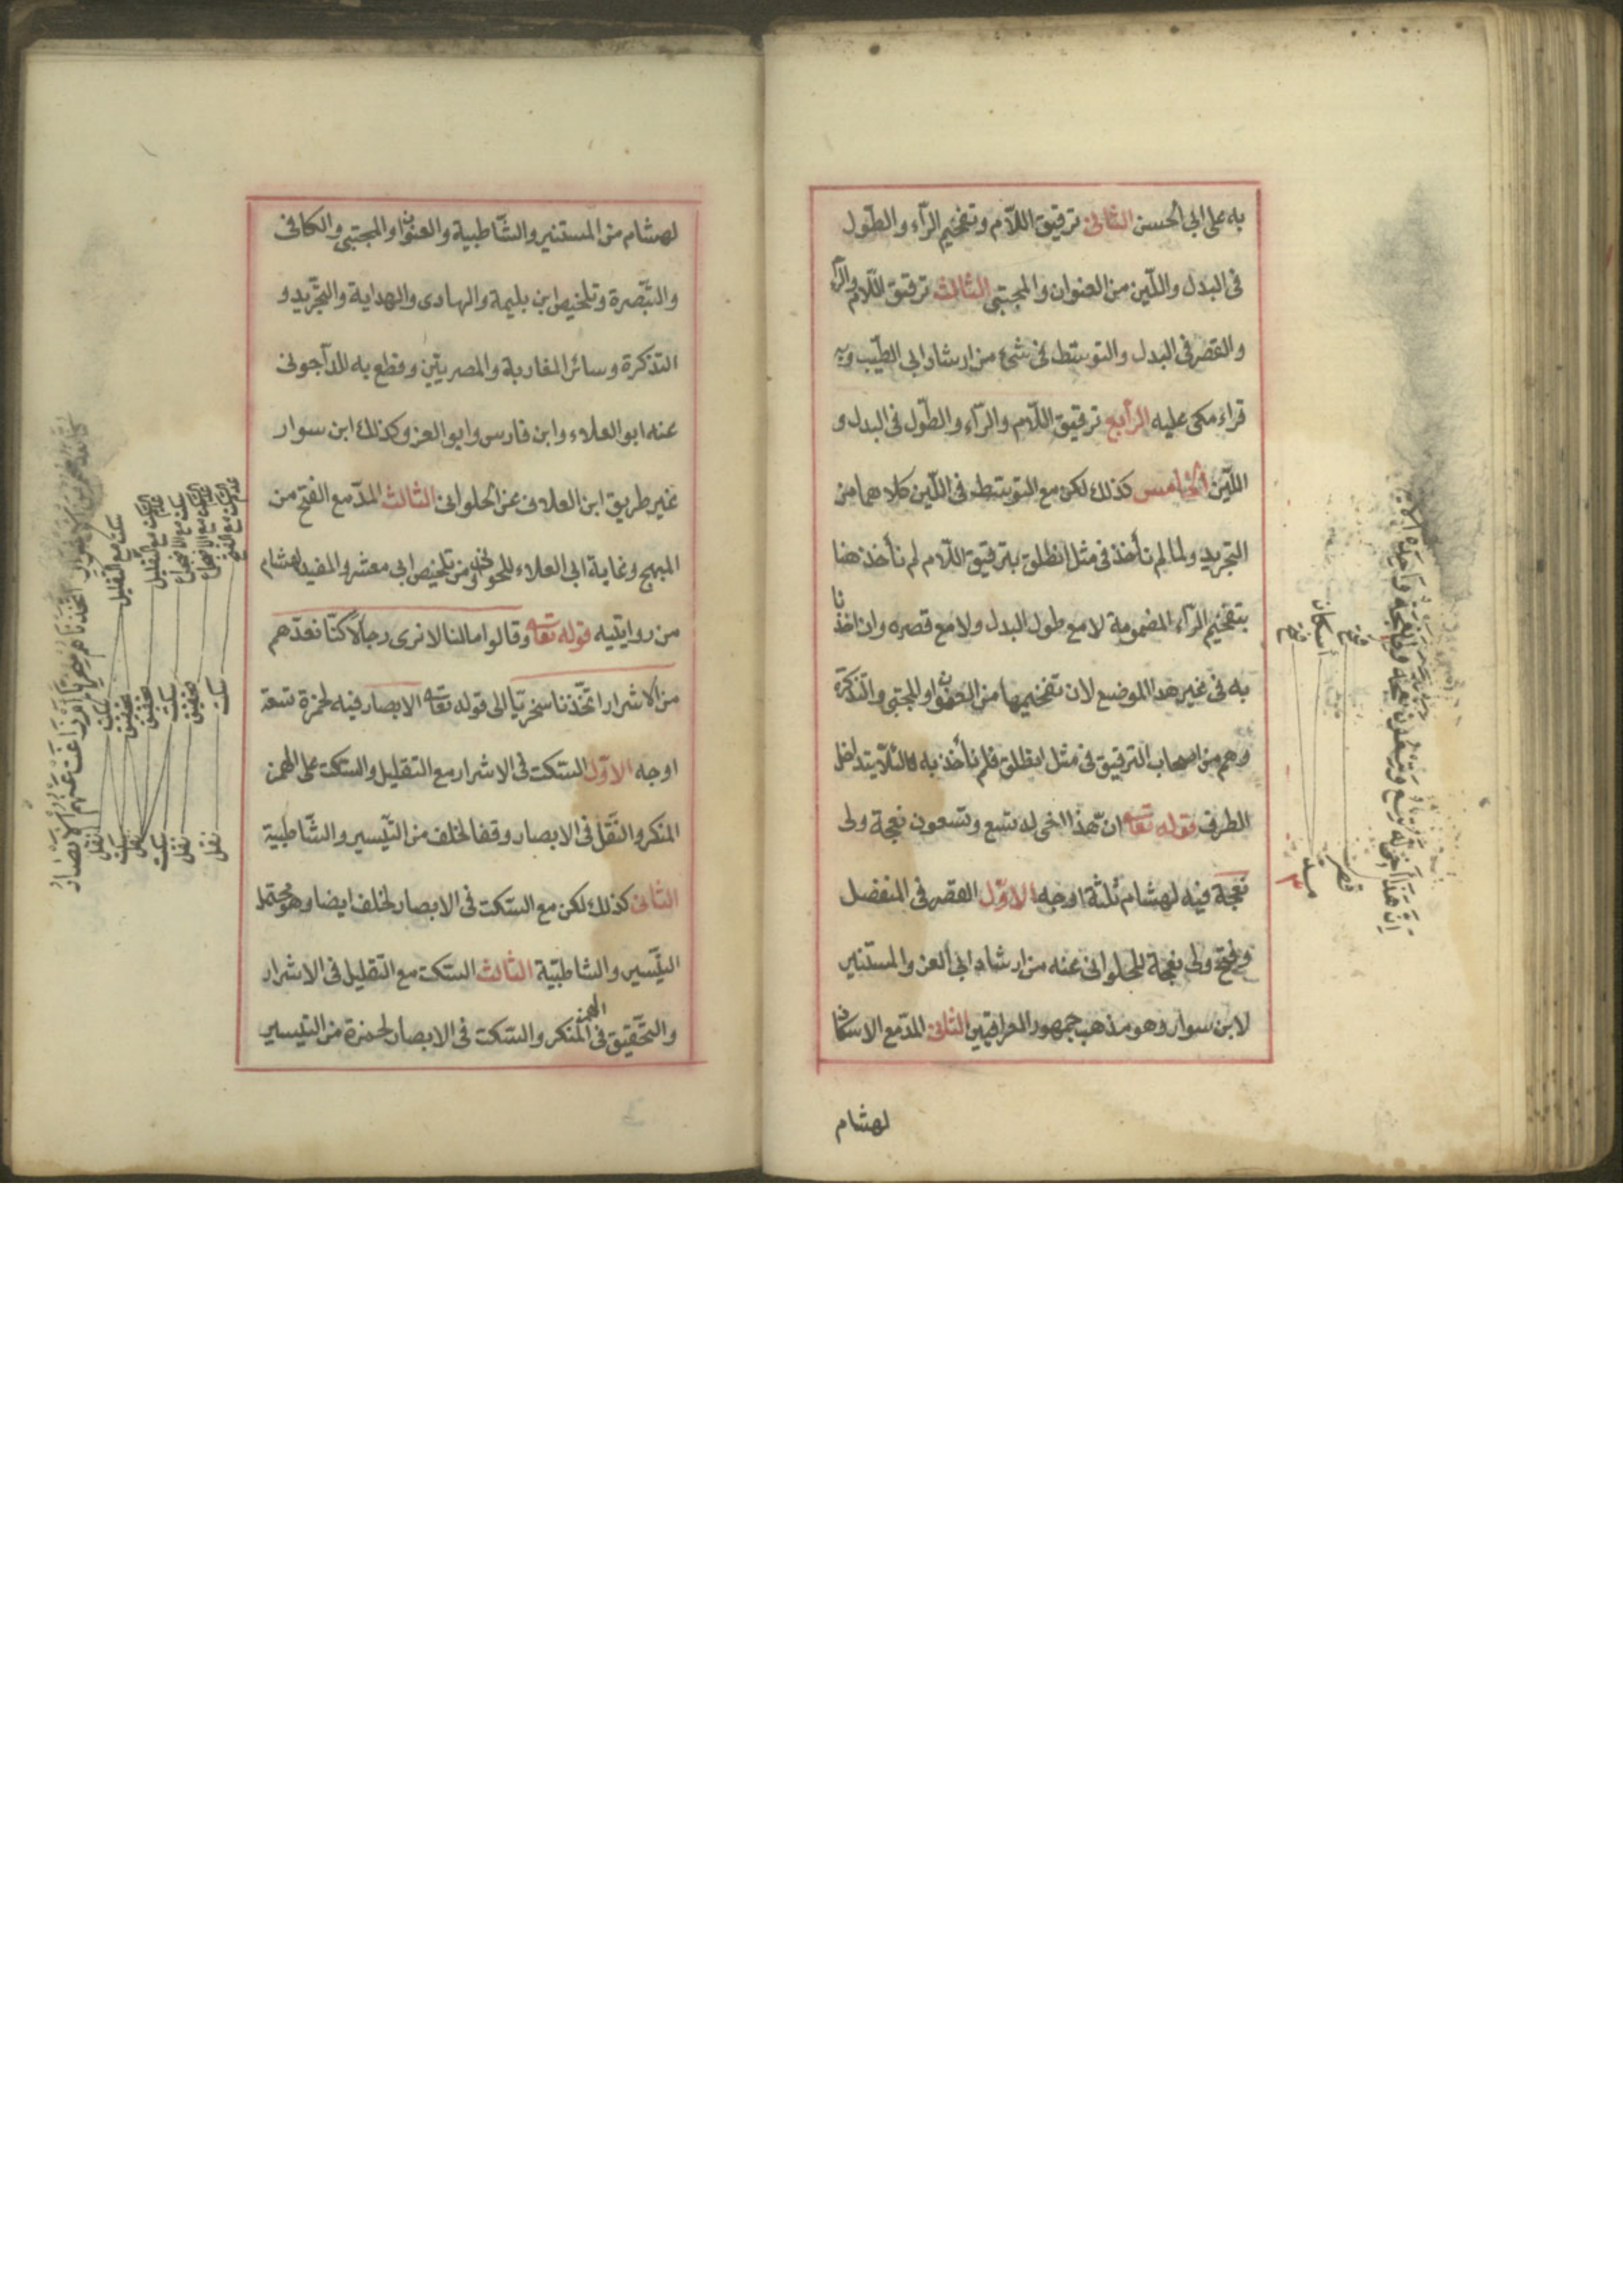 به على ابى الحسن الثانى ترقيق اللّام وتفخيم الرّاء والطّول
فى البدل واللّين من العنوان والمجتبى الثالث ترقيق اللّام والرّاء
والقصر فى البدل والتوسّط فى شئ من ارشاد ابى الطّيب وبه
قراء مكى عليه الرّابع ترقيق اللّام والرّاء والطّول فى البدل و
اللّين الخامس كذلك لكن مع التوسّط فى اللّين كلاهما من
التجريد ولما لم نأخذ فى مثل انطلق بترقيق اللّام لم نأخذ هنا
بتفخيم الرّاء المضمومة لا مع طول البدل ولا مع قصره وان اخذنا
به فى غير هذا الموضع لان تفخيمها من العنوان والمجتبى والتذكرة
وهم من اصحاب الترقيق فى مثل انطلق فلم نأخذ به لئلّا يتداخل
الطرق قوله تعالى انّ هذا اخى له تسع وتسعون نعجة ولى
نعجة فيه لهشام ثلثة اوجه الاوّل القصر فى المنفصل
وفتح ولى نعجة للحلوانى عنه من ارشاد ابى العز والمستنير
لابن سوار وهو مذهب جمهور العراقيين الثانى المدّ مع الاسكان
لهشام
انّ هذا اخى له تسع وتسعون نعجة ولى نعجة واحدة
فتح
اسكان
فتح
قصر
مد
لهشام من المستنير والشّاطبية والعنوان والمجتبى والكافى
والتّبصرة وتلخيص ابن بليمة والهادى والهداية والتجّريد و
التذكرة وسائر المغاربة والمصريّين وقطع به للدّاجونى
عنه ابو العلاء وابن فارس وابو العز وكذلك ابن سوار
غير طريق ابن العلاف عن الحلوانى الثالث المدّ مع الفتح من
المبهج وغاية ابى العلاء للحلوانى ومن تلخيص ابى معشر والمفيد لهشام
من روايتيه قوله تعالى وقالوا مالنا لا نرى رجالا كنّا نعدّهم
من الاشرار اتّخذنا سخريّا الى قوله تعالى الابصار فيه لحمزة تسعة
اوجه الاوّل السّكت فى الاشرار مع التقليل والسّكت على الهمز
المنكر والنّقل فى الابصار وقفا لخلف من التّيسير والشّاطبية
الثانى كذلك لكن مع السّكت فى الابصار لخلف ايضا وهو محتمل
التّيسير والشاطبيّة الثالث السّكت مع التّقليل فى الاشرار
والتّحقيق فى الهمز المنكر والسّكت فى الابصار لحمزة من التيسير
سكت مع التقليل
سكت
تحقيق
تحقيق
سكت
تحقيق
سكت
نقل
سكت
نقل
سكت
نقل
نقل